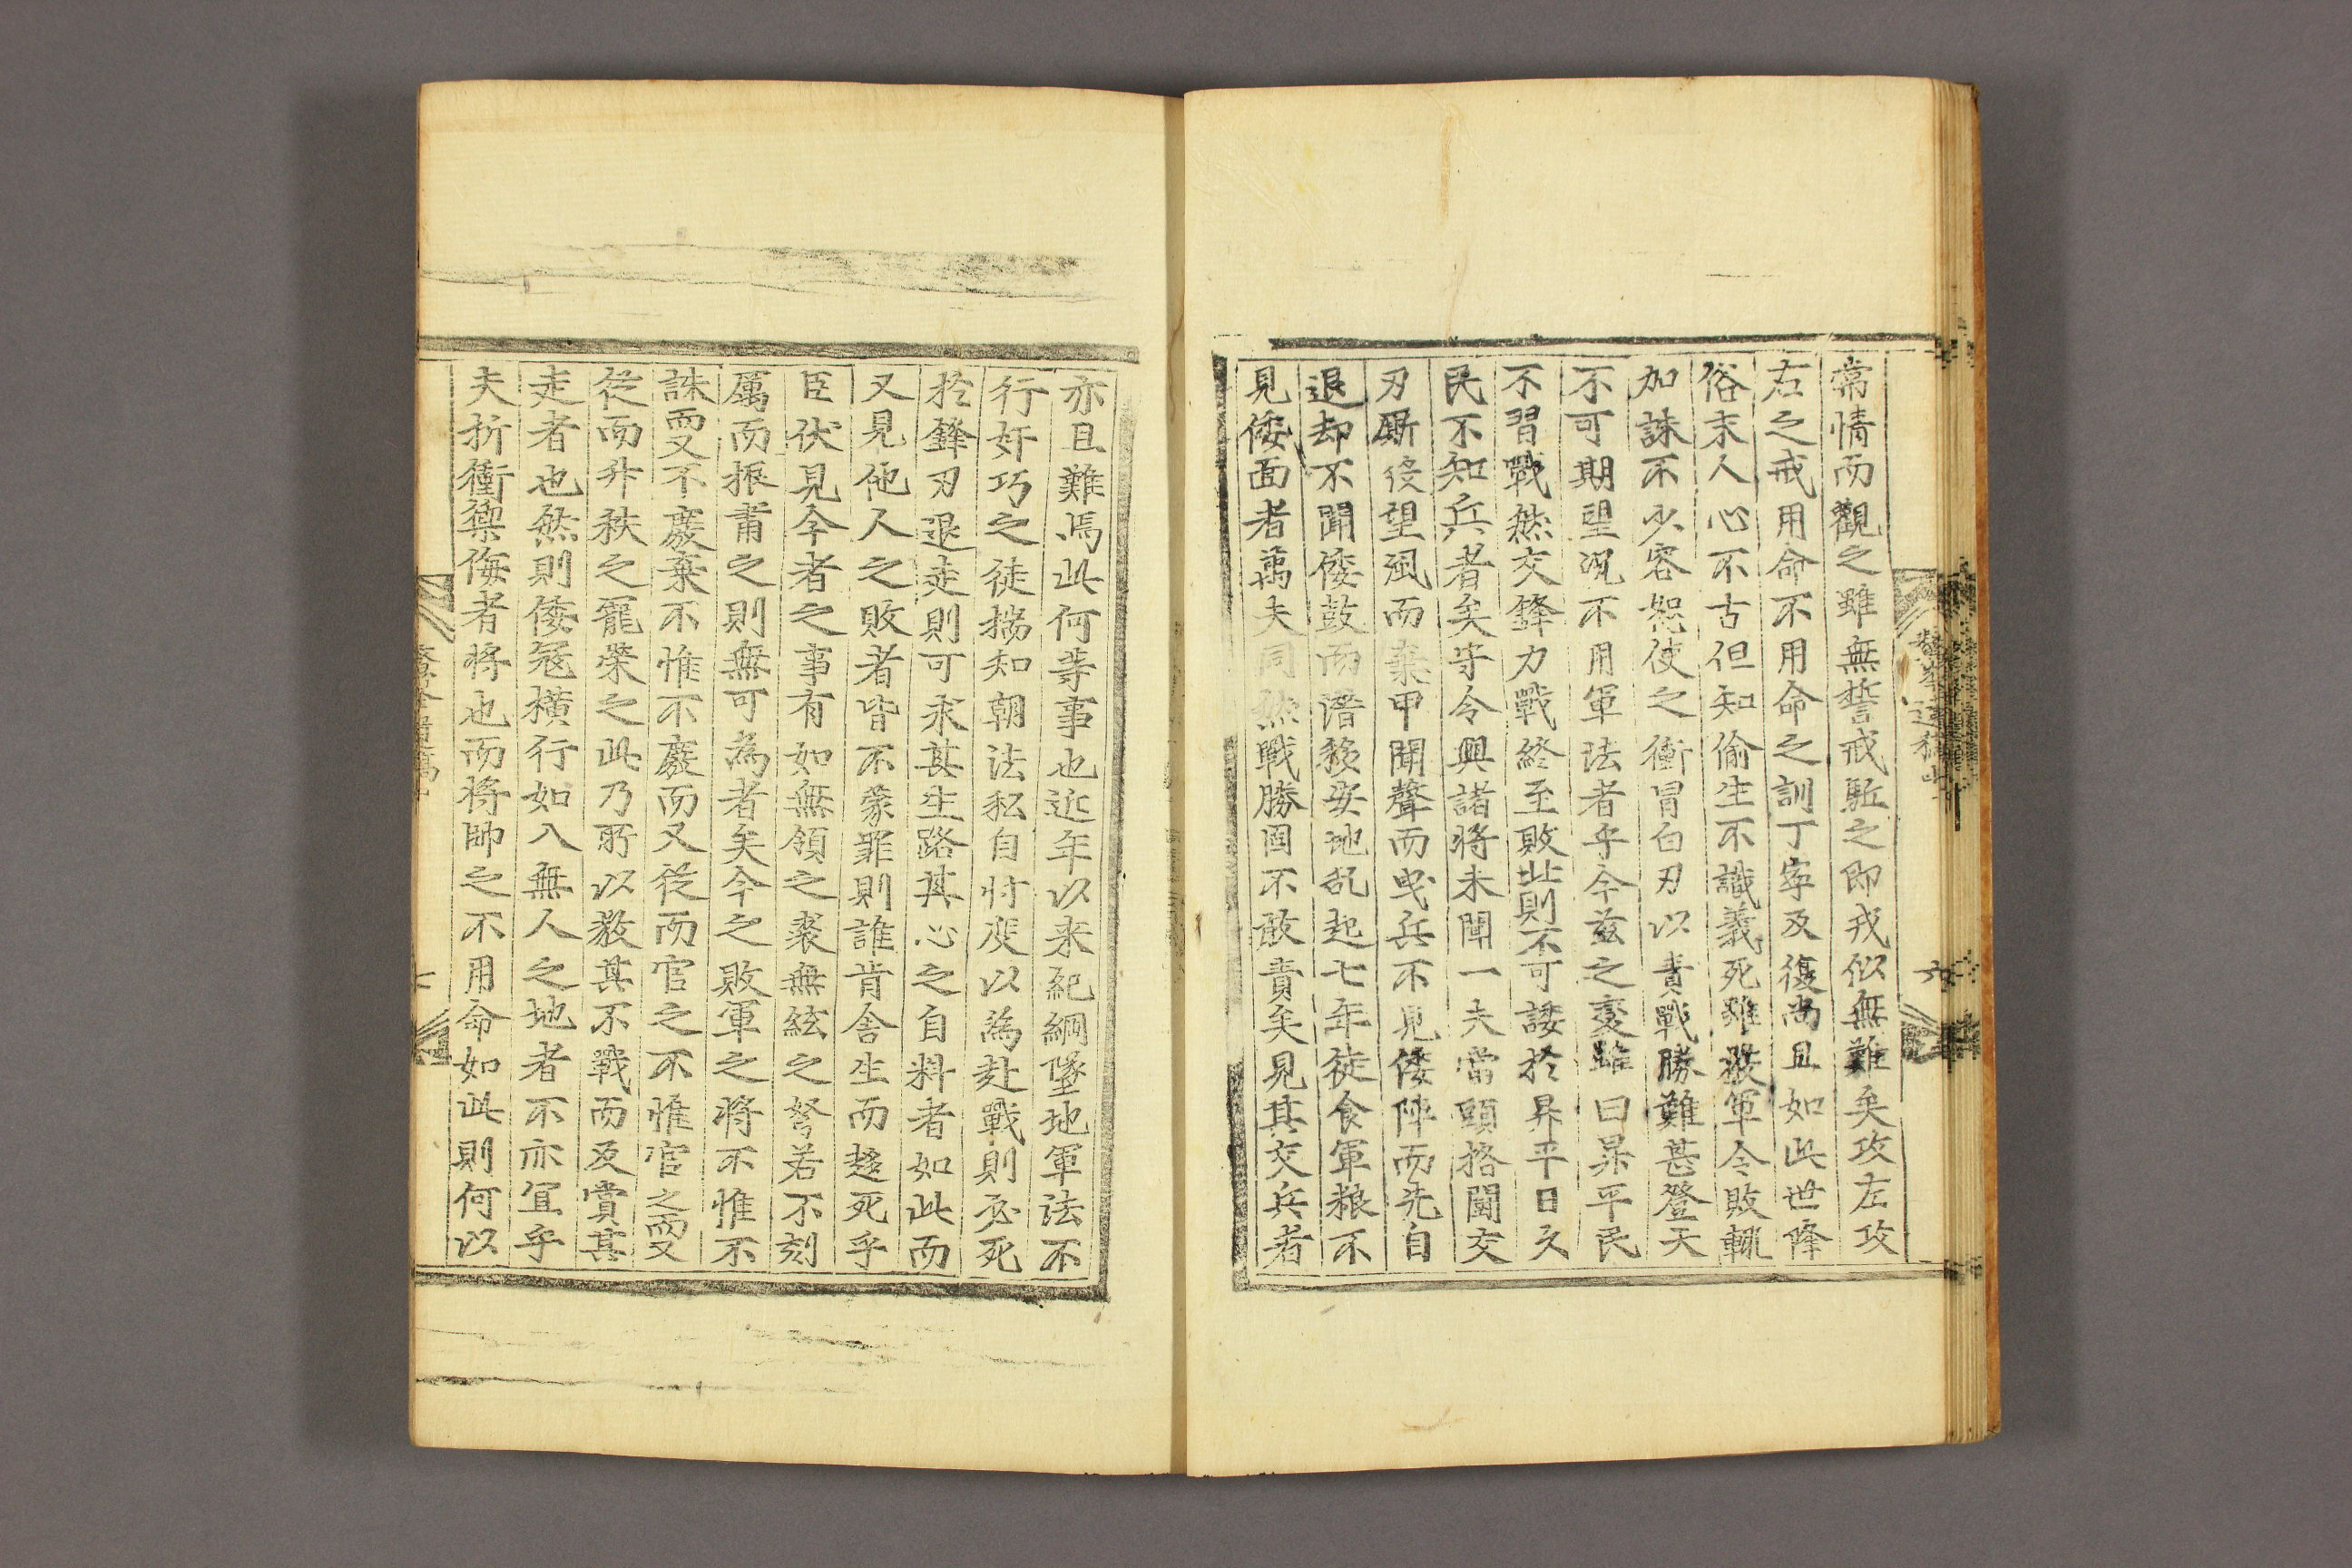 常情而觀之雖無誓戒駈之即戎似無難矣攻左攻
右之戒用命不用命之訓丁寧反復尚且如此世降
俗末人心不古但知偷生不識義死雖嚴軍令敗輒
加誅不少容恕使之衝冒白刃以責戰勝難甚登天
不可期望況不用軍法者乎今玆之變雖曰昇平民
不習戰然交鋒力戰終至敗北則不可諉於昇平日久
民不知兵者矣守令興諸將未聞一夫當頭挌鬪交
刃厮役望風而棄甲聞聲而曳兵不見倭陣而先自
退却不聞倭鼓而潛移安地乱起七年徒食軍粮不
見倭面者萬夫同然戰勝固不敢責矣見其交兵者
亦且難焉此何等事也近年以来紀綱墜地軍法不
行奸巧之徒揣知朝法私自忖度以為赴戰則必死
於鋒刃退走則可求甚生路其心之自料者如此而
又見他人之敗者皆不蒙罪則誰肯舍生而趍死乎
臣伏見今者之事有如無領之裘無絃之弩若不刻
厲而振肅之則無可為者矣今之敗軍之將不惟不
誅而又不廢棄不惟不廢而又從而官之不惟官之而又
從而升秩之寵榮之此乃所以教其不戰而反賞其
走者也然則倭冦橫行如入無人之地者不亦宜乎
夫折衝禦侮者将也而将帥之不用命如此則何以